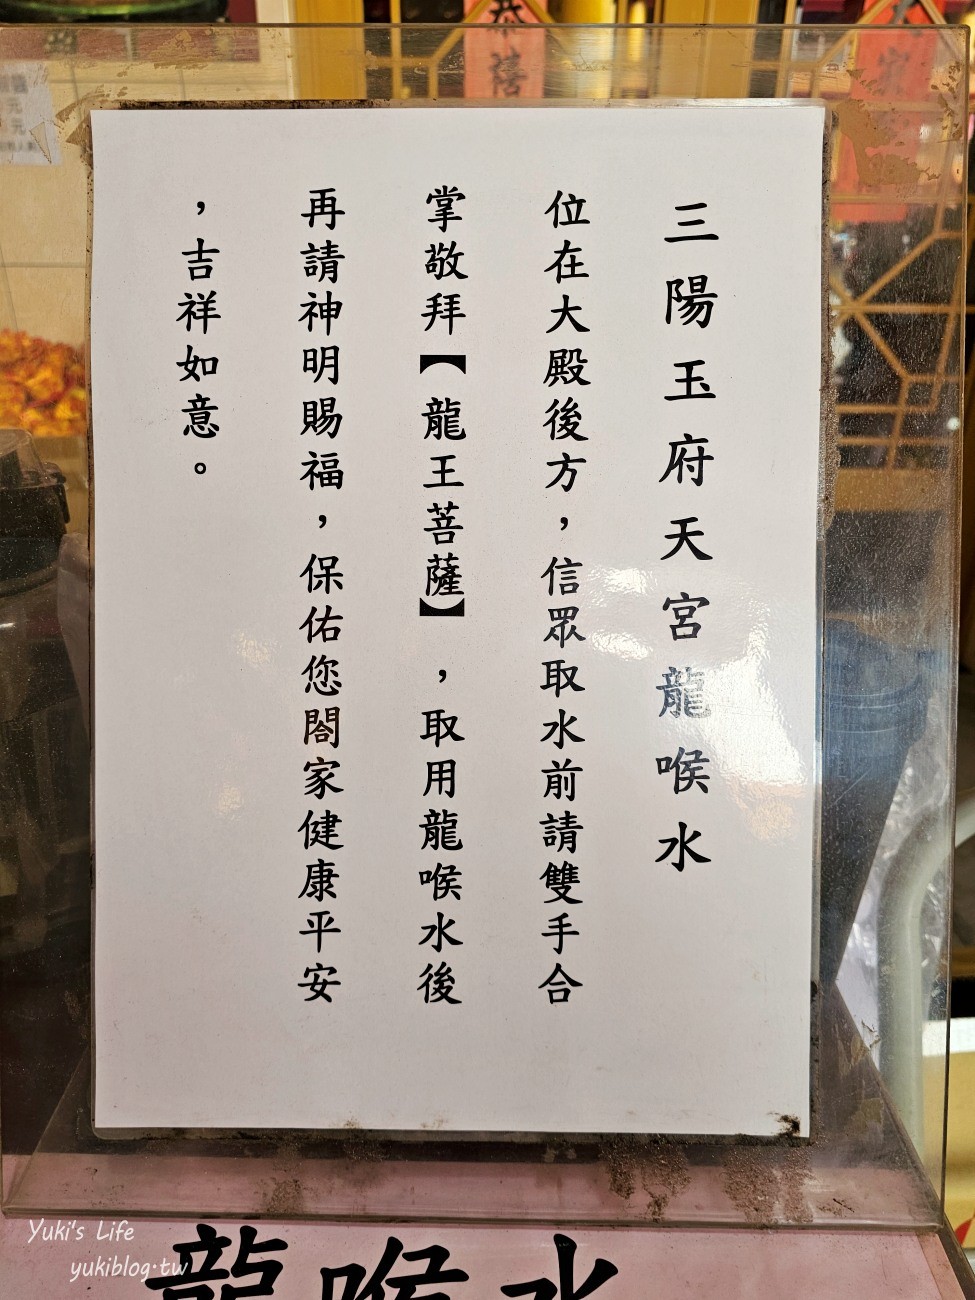 三陽玉府天宮龍喉水
位在大殿後方，信眾取水前請雙手合
掌敬拜【龍王菩薩】，取用龍喉水後
再請神明賜福，保佑您閤家健康平安
，吉祥如意。
恭禧
龍喉水
Yuki's Life
yukiblog.tw